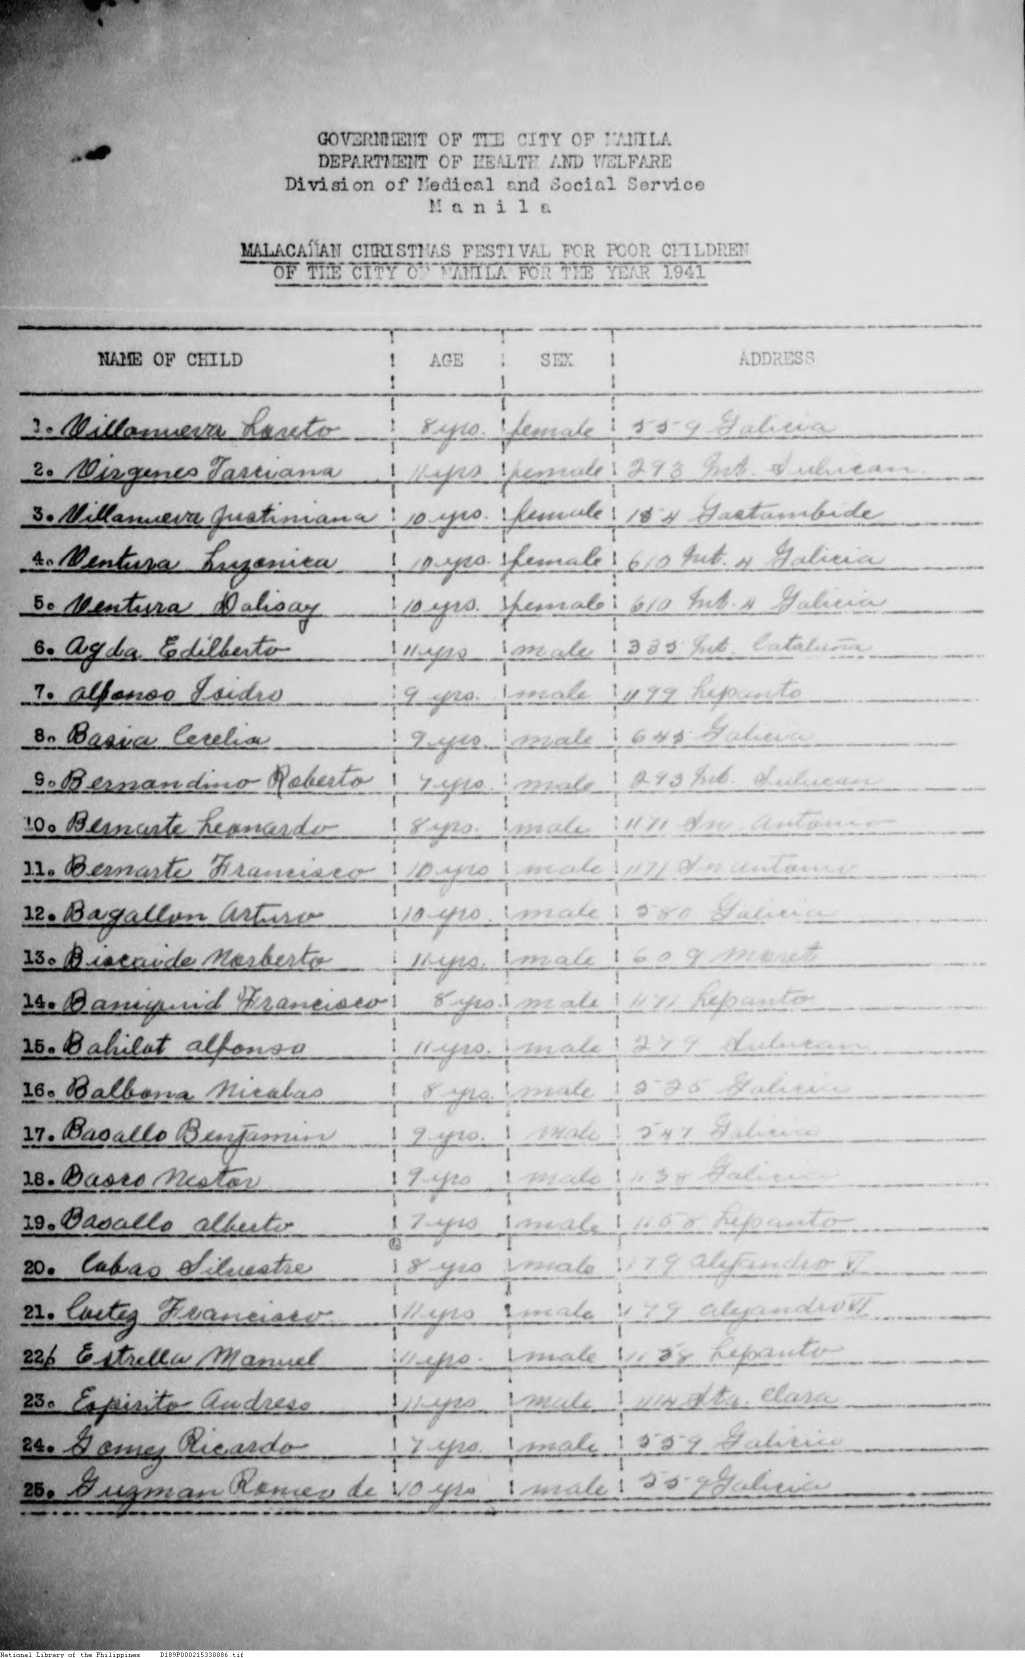 GOVERNMENT OF THE CITY OF MANILA
DEPARTMENT OF HEALTH AND WELFARE
Division of Medical and Social Service
M a n i l a
MALACAÑAN CHRISTMAS FESTIVAL FOR POOR CHILDREN
OF THE CITY OF MANILA FOR THE YEAR 1941
NAME OF CHILD AGE SEX ADDRESS
1. Villanueva Loreto 8 yrs. female 559 Galicia
2. Virgenes Tarciana 11 yrs female 293 Int. Sulucan
3. Villanueva Justiniana 10 yrs. female 154 Gastambide
4. Ventura Luzonica 10 yrs. female 610 Int. 4 Galicia
5. Ventura Dalisay 10 yrs. female 610 Int. 4 Galicia
6. Agda Edilberto 11 yrs male 335 Int. Cataluña
7. Alfonso Isidro 9 yrs. male 1199 Lepanto
8. Basia Cecelia 9 yrs. male 645 Galicia
9. Bernandino Roberto 7 yrs. male 293 Int. Sulucan
10. Bernarte Leonardo 8 yrs. male 1171 Sn Antonio
11. Bernarte Francisco 10 yrs male 1171 Sn Antonio
12. Bagallon Arturo 10 yrs. male 580 Galicia
13. Biscaide Norberto 11 yrs. male 609 Moret
14. Baniquid Francisco 8 yrs. male 1171 Lepanto
15. Bahilot Alfonso 11 yrs. male 279 Sulucan
16. Balbona Nicolas 8 yrs. male 525 Galicia
17. Basallo Benjamin 9 yrs. male 547 Galicia
18. Basco Nestor 9 yrs male Galicia
19. Basallo Alberto 7 yrs male 1158 Lepanto
20. Cabas Silvestre 8 yrs male 179 Alejandro VI
21. Cortez Francisco 11 yrs male 179 Alejandro VI
22. Estrella Manuel 11 yrs. male 1158 Lepanto
23. Espirito Andress 11 yrs male 1114 Sta. Clara
24. Gomez Ricardo 7 yrs. male 559 Galicia
25. Guzman Romeo de 10 yrs male 559 Galicia
National Library of the Philippines D189P000215330886.tif